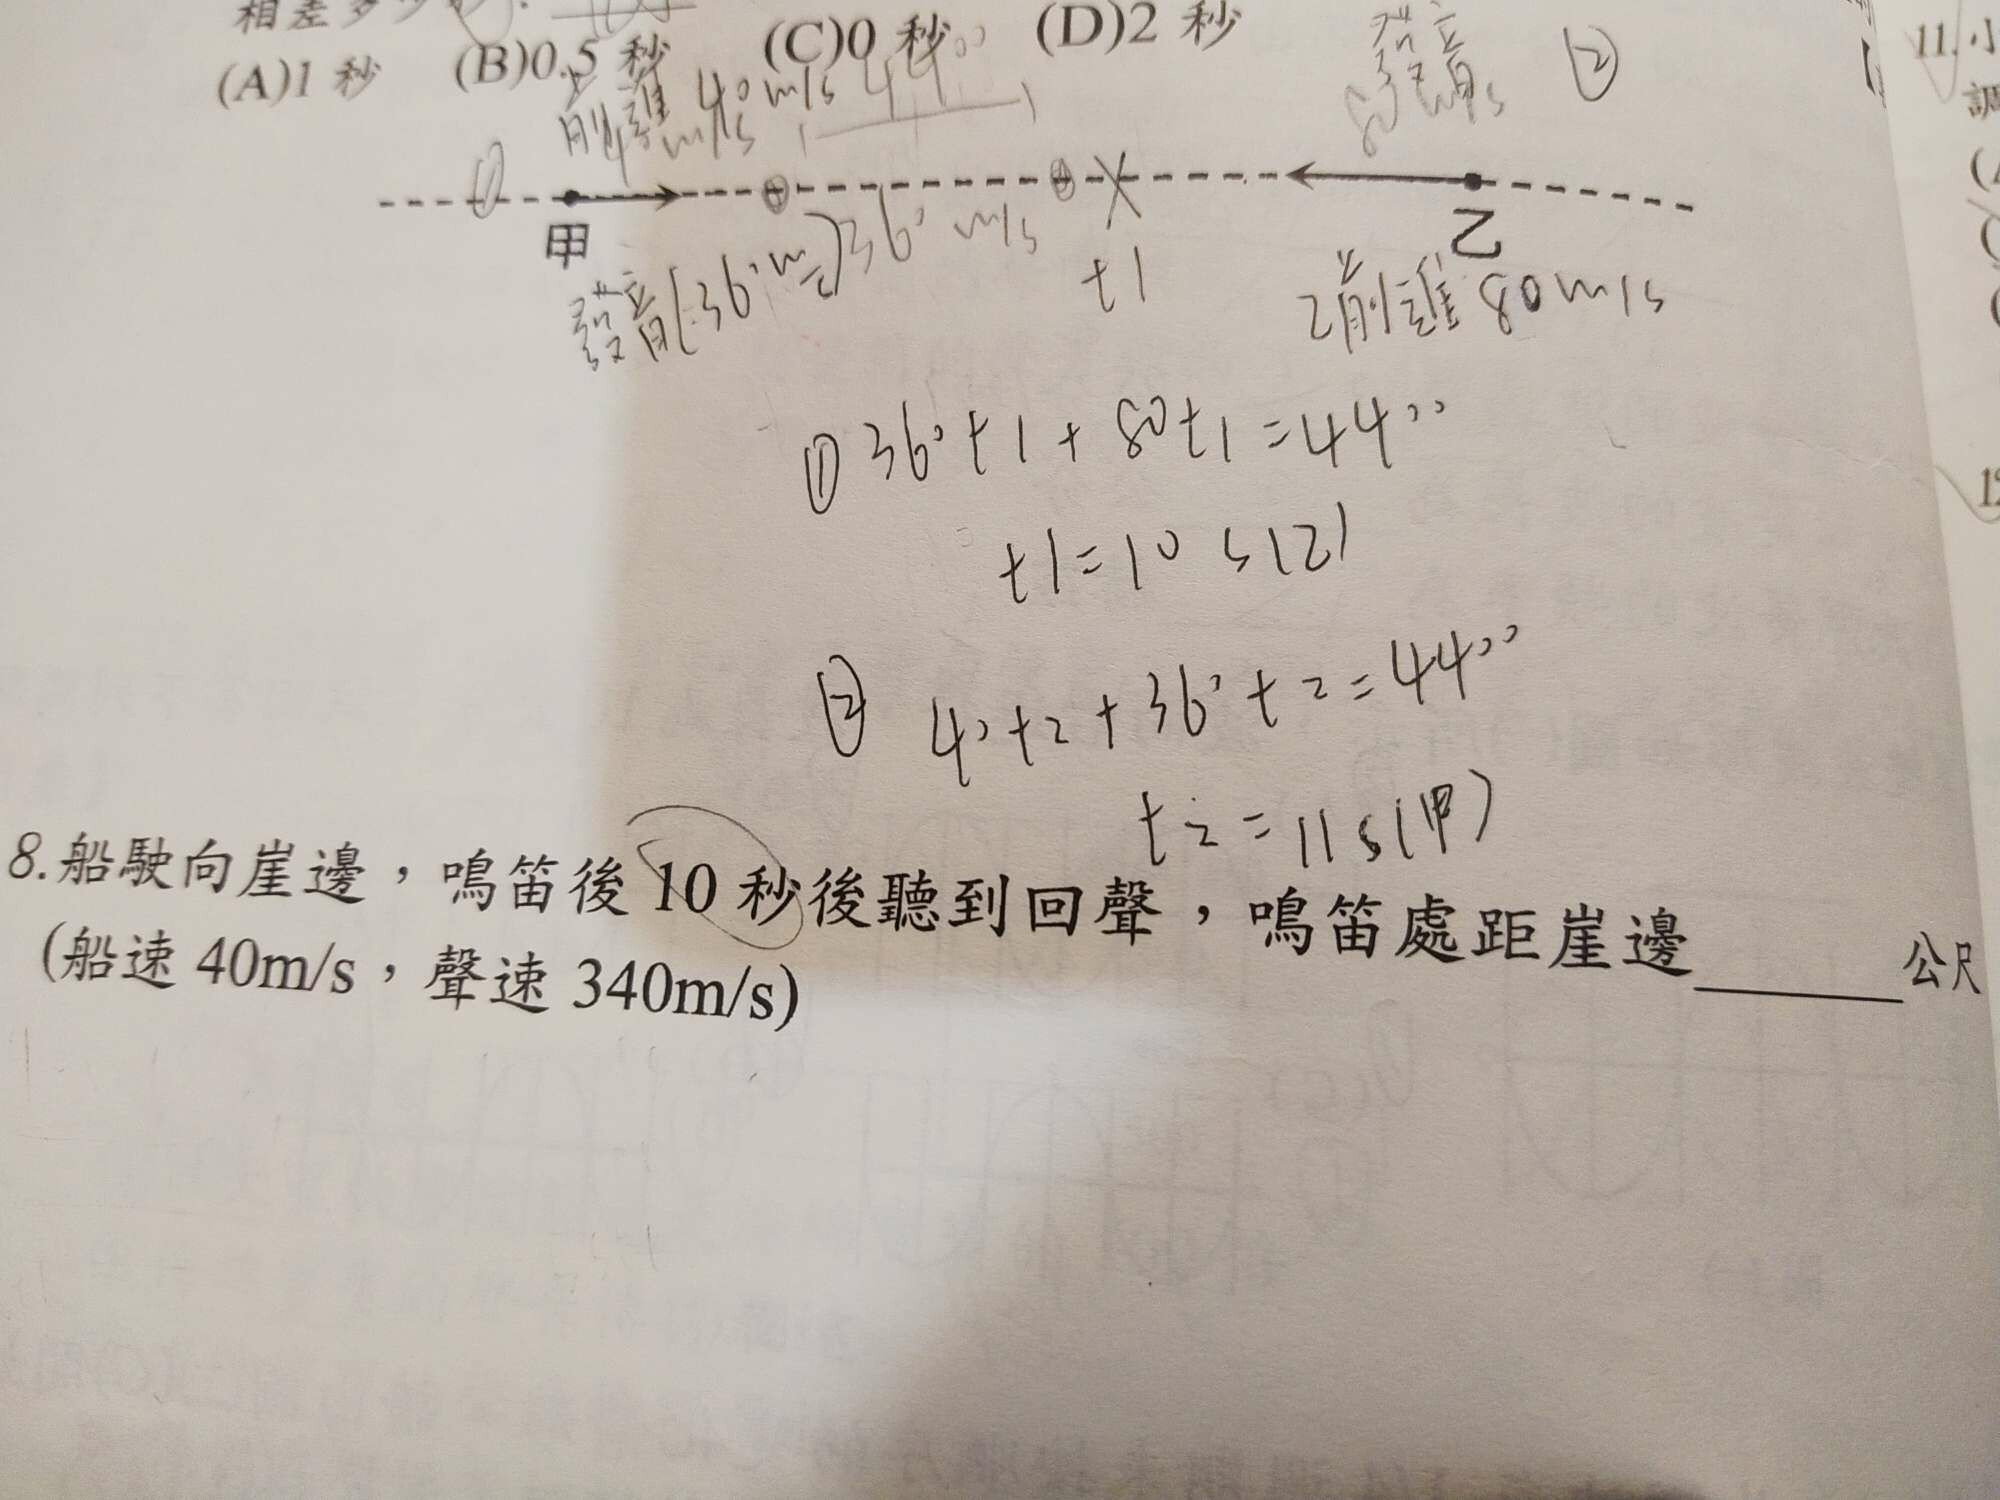 相差多少
(A)1 秒 (B)0.5 秒 (C)0 秒 (D)2 秒
發音 ②
80 m/s
前進 40 m/s 4400
①
甲 乙
發音 360 m/s
t1
前進 80 m/s
① 360t1 + 80t1 = 4400
t1 = 10 s (乙)
② 40t2 + 360t2 = 4400
t2 = 11 s (甲)
8.船駛向崖邊,鳴笛後 10 秒後聽到回聲,鳴笛處距崖邊______公尺
(船速 40m/s,聲速 340m/s)
11.小
調
12